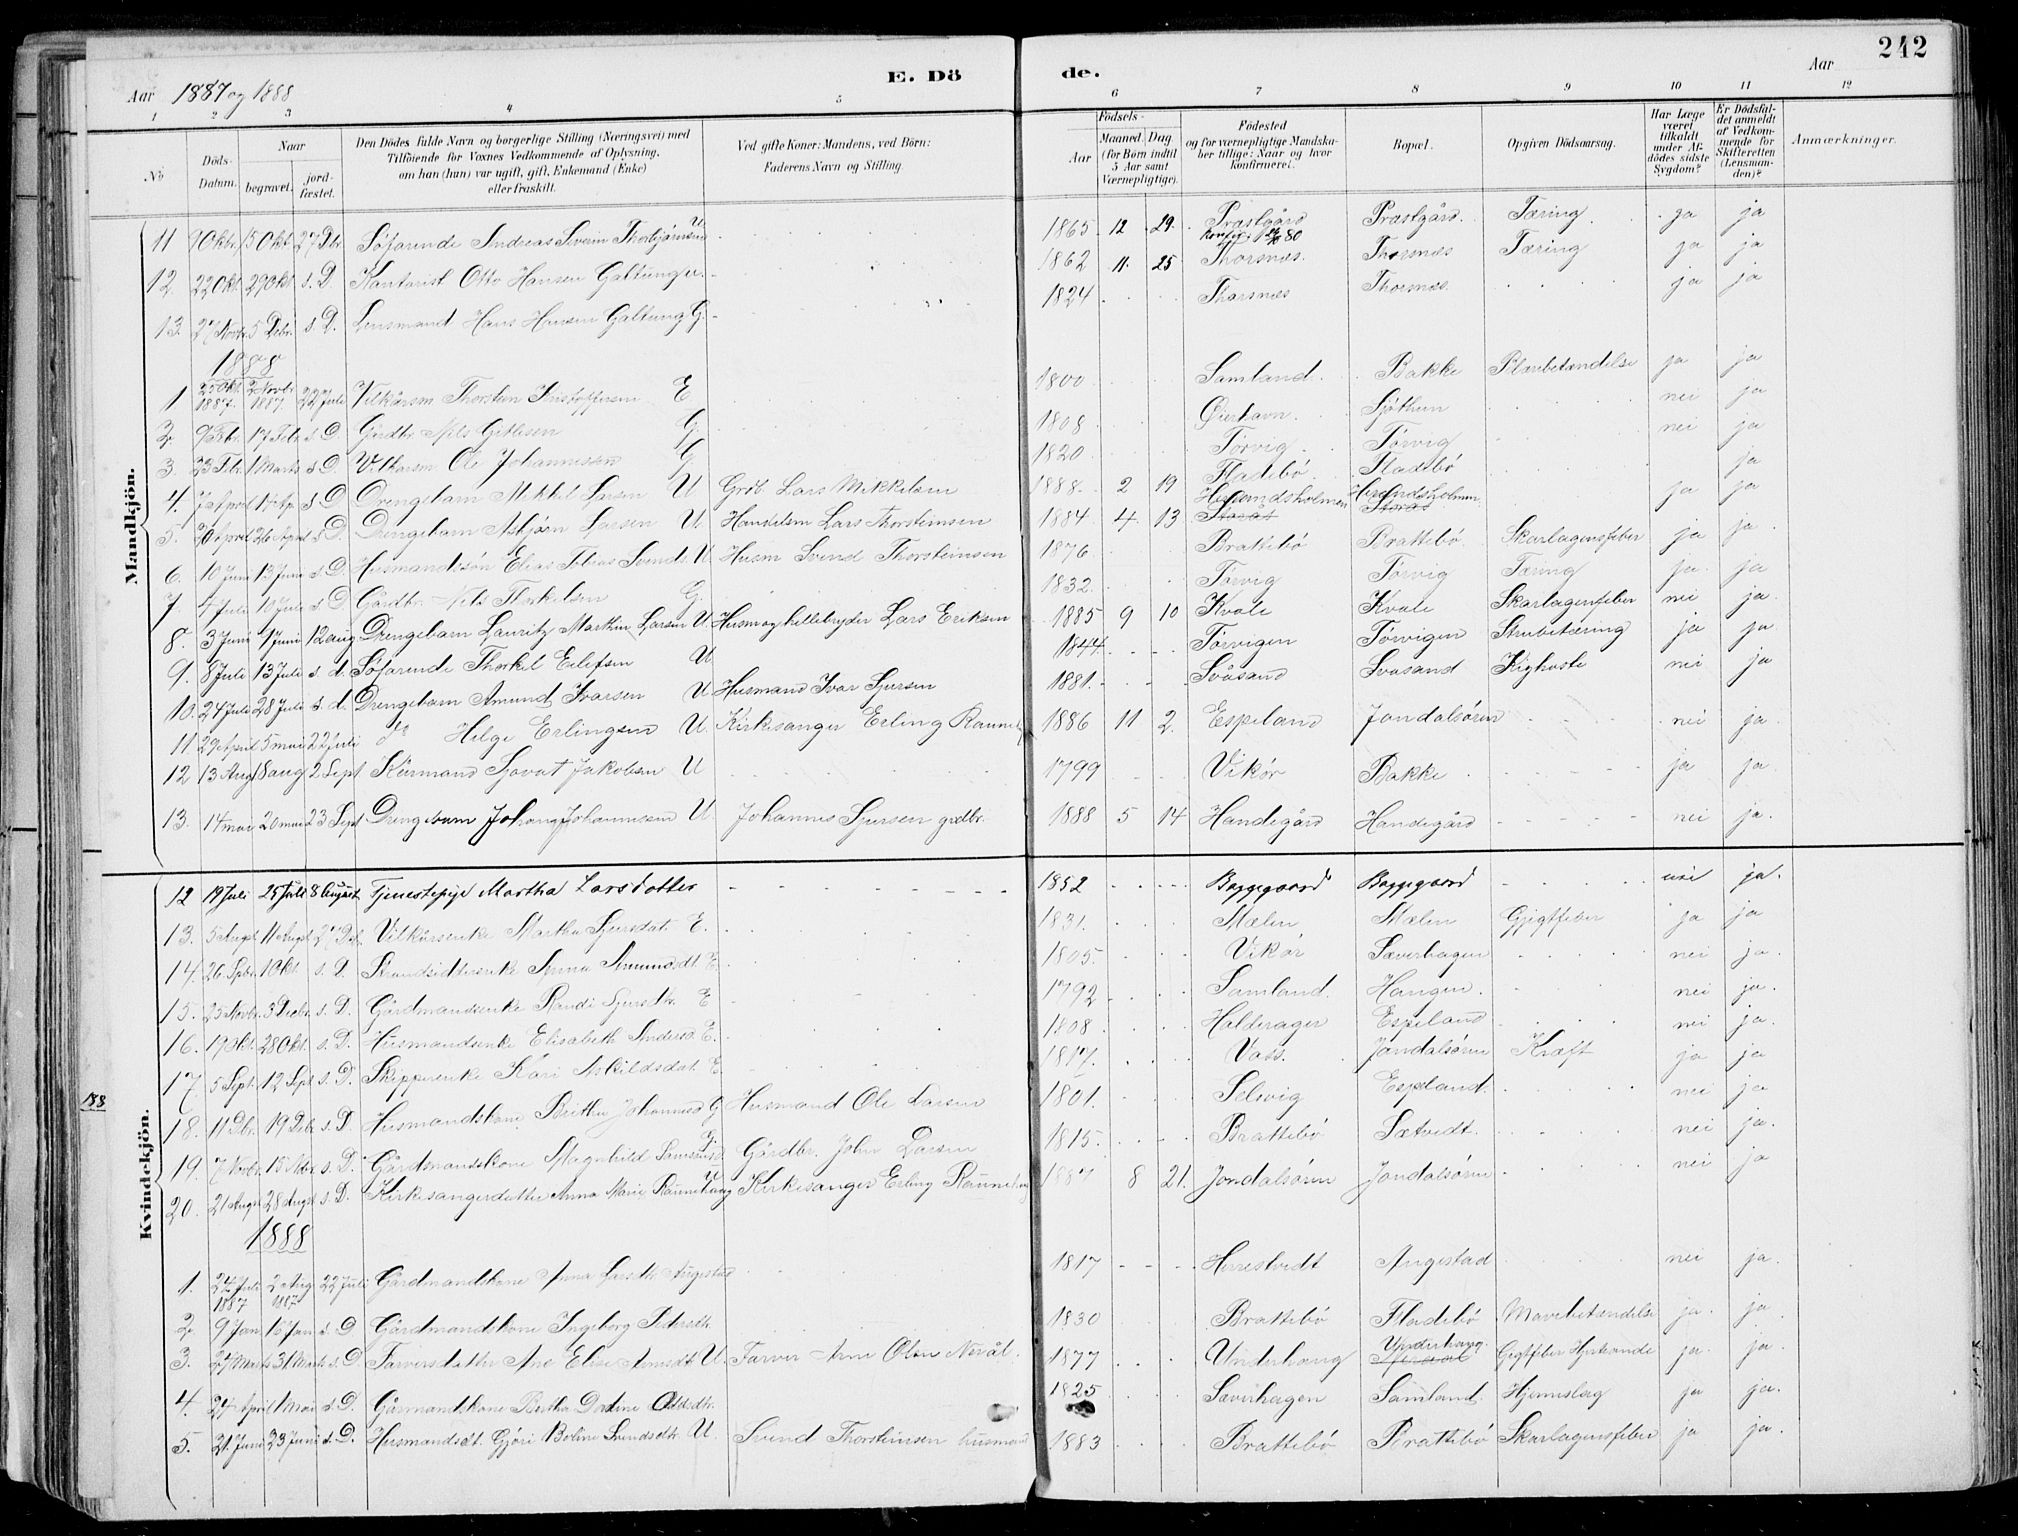 242
E. Dö de.
Aar 1887 og 1888
Aar
1 2 3 4 5 6 7 8 9 10 11 12
No
Döds-Datum.
Naar
begravet.
jord-fæstet.
Den Dödes fulde Navn og borgerlige Stilling (Næringsvei) med
Tilföiende for Voxnes Vedkommende af Oplysning,
om han (hun) var ugift, gift, Enkemand (Enke)
eller fraskilt.
Ved gifte Koner: Mandens, ved Börn:
Faderens Navn og Stilling.
Födsels-
Aar
Maaned. Dag
(for Börn indtil
5 Aar samt
Værnepligtige).
Födested
og for værnepligtige Mandska-
ber tillige: Naar og hvor
konfirmeret.
Bopæl.
Opgiven Dödsaarsag.
Har Læge
været
tilkaldt
under Af-
dödes sidste
Sygdom?
Er Dödsfal-
det anmeldt
af Vedkom-
mende for
Skifteretten
(Lensman-
den)?
Anmærkninger.
Mandkjön.
11 9 Okbr. 15 Okt 27 Dbr. Söfarende Andreas Severin Thorbjörnsen U 1865 12 29 Præstgård Præstgård. Tæring ja ja
12. 22 Okt. 29 Okt s. D. Kontorist Otto Hansen Galtung u. 1862 11. 25 Thorsnæs. Thorsnæs Tæring ja ja
13. 27 Novbr. 5 Debr. s D. Lensmand Hans Hansen Galtung G. 1824 Thorsnæs Thorsnæs. ja ja
1888
1 25 Okt 1887. 2 Novbr 1887. 22 Juli Vilkårsm Thorsten E 1800. Samland. Bakke Blærbetændelse ja ja
2. 9 Febr. 17 Febr s D. Gårdbr. Nils Gitlesen G. 1808 Öierhavn. Sjöthun nei ja
3. 23 Febr. 1 Marts s D. Vilkårsm Ole Johannesen G 1820 Törvig. Törvig nei ja
4. 7 April 14 Ap. s D Drengebarn Mikkel Larsen U Grdb. Lars Mikkelsen 1888. 2 19 Fladebö Fladebö ja
5. 20 April 26 April s D. Drengebarn Asbjörn Larsen U. Handelsm Lars Thorsteinsen 1884 4 13 Herandsholmen Herandsholmen ja ja
6. 10 Juni 13 Juni s D. Husmandssön Elias Tobias Svends. U Husm Svend Thorsteinsen 1876. Brattebö Brattebö Skarlagensfeber ja ja.
7 4 Juli 10 Juli s D. Gårdbr. Nils Thorkelsen G. 1832. Törvig Törvig Tæring ja. ja
8. 3 Juni 7 Juni 12 aug Drengebarn Lauritz Martin Larsen U. Husm og hellebryder Lars Eriksen 1885 9 10 Kvale Kvale Skarlagensfeber nei ja.
9. 8 Juli 13 Juli s. d. Söfarende Thorkel Eilefsen U 1844. Törvigen Törvigen Strubetæring ja ja
10. 24 Juli 28 Juli s. d. Drengebarn Amund Ivarsen U Husmand Ivar Sjursen 1881. Svåsand Svåsand Kighoste nei ja
11 29 April 5 mai 22 Juli do Helge Erlingsen U Kirkesanger Erling 1886 11 2. Espeland Jondalsören nei ja.
12 13 Aug 18 aug 2 Sept. Kårmand Sjovat Jakobsen U 1799 Vikör Bakke ja ja.
13. 14 mai 20 mai 23 Sept Drengebarn Johannes Johannessen U. Johannes Sjursen grdbr. 1888 5 14 Handegård Handegård nei ja.
Kvindekjön.
12 19 Juli 25 Juli 8 August Tjenestepige Martha Larsdotter 1852 Baggegaard Baggegaard nei ja.
13. 5 Augst 11 Augst 27 Dbr. Vilkårsenke Martha Sjursdat. E. 1831. Mælen Mælen Gjigtfeber ja ja
14. 26 Spbr. 1 Okt. s. D. Strandsidderenke Anna Amundsdt. E. 1805. Vikör Saverhagen nei ja.
15. 23 Novbr. 3 Decbr. s. D. Gårdmandsenke Randi Sjursdtr. E 1792 Samland. Haugen nei ja.
16. 19 Okt. 28 Okt. s. D. Husmandsenke Elisabeth Andersd. E. 1808 Halderager Espeland nei ja.
17. 5 Sept. 12 Spt s. D. Skipperenke Kari Askildsdat. E 1817. Vass. Jondalsören Kræft ja ja
18. 11 Dbr. 19 Debr s. D. Husmandskone Britha Johannesd G Husmand Ole Larsen 1801. Selsvig Espeland. nei ja
19. 7 Novbr. 15 Nbr. s. D. Gårdmandskone Magnhild G. Gårdbr. John Larsen 1815. Brattebö Sætvedt. nei ja.
20. 21 Augst 28 Augst s. D. Kirkesangerdatter Anna Marie Raunehaug U Kirkesanger Erling Raunehaug 1887 8 21. Jondalsören Jondalsören nei ja
1888
1. 24 Juli 1887 2 Aug 1887 22 Juli Gårdmandskone Anna Larsdtr. Augestad 1817 Herrestvedt Augestad nei ja.
2. 9 Jan 16 Jan s D Gårdmandskone Ingeborg Pedersdtr. 1830 Brattebö Fladebö Mavebetændelse ja. ja.
3. 24 Marts 31 Marts s. D. Farversdatter Ane Elise Arnesdt. U. Farver Arne Olsen Neraal. 1877 Underhaug Underhaug. Gigtfeber Hjertevande ja. ja.
4. 24 April 1 Mai s D. Gårmandskone Bertha Dortine Oddsdtr. 1825 Saverhagen Samland. Hjerneslag ja ja.
5. 21. Juni 23 Juni s. D. Husmandsdt. Gjöri Boline Svendsdtr. U. Svend Thorsteinsen husmand 1883 Brattebö Brattebö Skarlagensfeber ja ja.
188